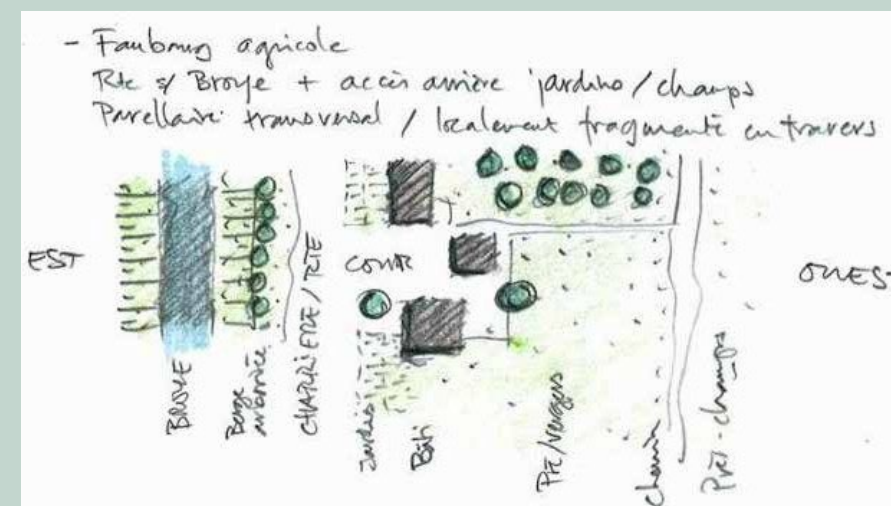 - Faubourg agricole
Rte s/ Broye + accès arrière jardins / champs
Parcellaire transversal / localement fragmenté en travers
EST
COUR
OUEST
BROYE
Berge arborisée
CHARRIÈRE / RTE
Jardin
Bâti
Pré/vergers
Chemin
Prés-champs